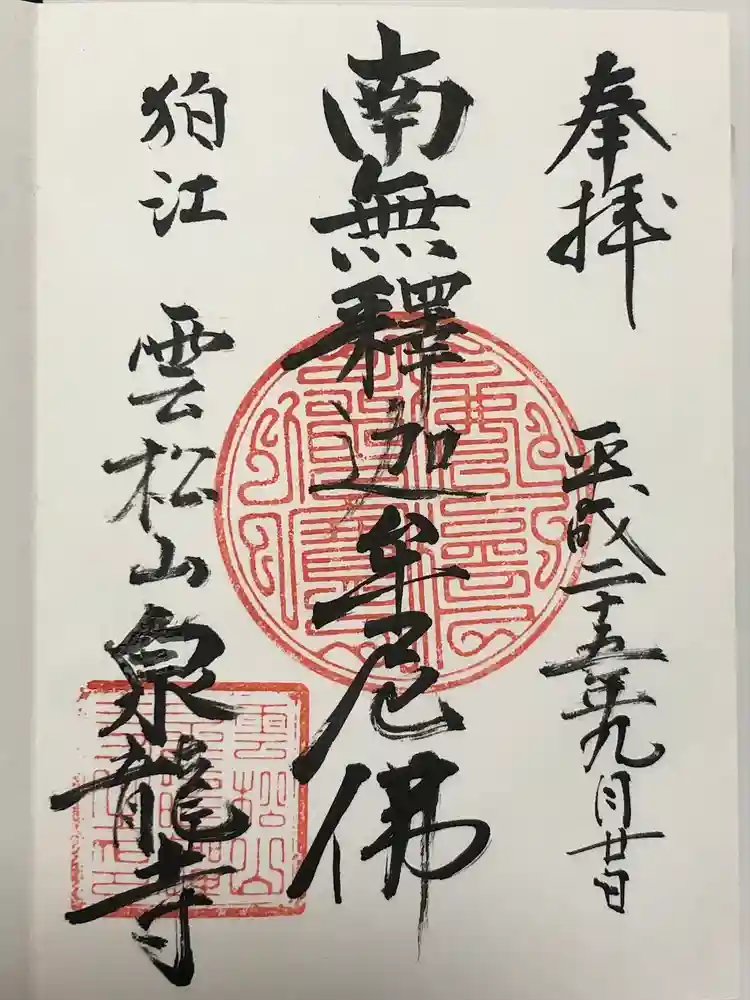 奉拝
平成二十五年九月廿日
南無釋迦牟尼佛
狛江 雲松山 泉龍寺
雲松山